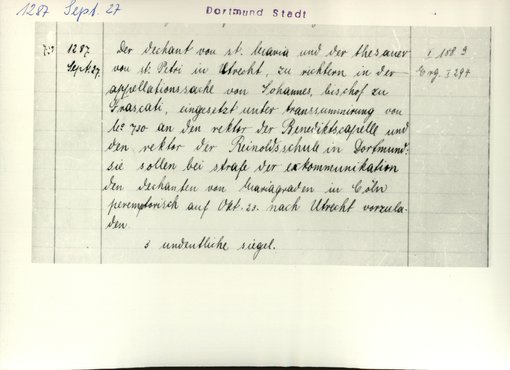 1287 Sept. 27
Dortmund Stadt
73
1287
Sept. 27.
Der dechant von st. Maria und der thesaurar
von st. Petri in Utrecht, zu richtern in der
appellationssache von Johannes, bischof zu
Frascati, eingesetzt unter transsumierung von
No 730 an den rektor der Benediktscapelle und
den rektor der Reinoldsschule in Dortmund:
sie sollen bei strafe der exkommunikation
den dechanten von Mariagraden in Cöln
peremptorisch auf Okt. 23. nach Utrecht vorzula-
den.
3 undeutliche siegel.
I 188
Erg. I 294